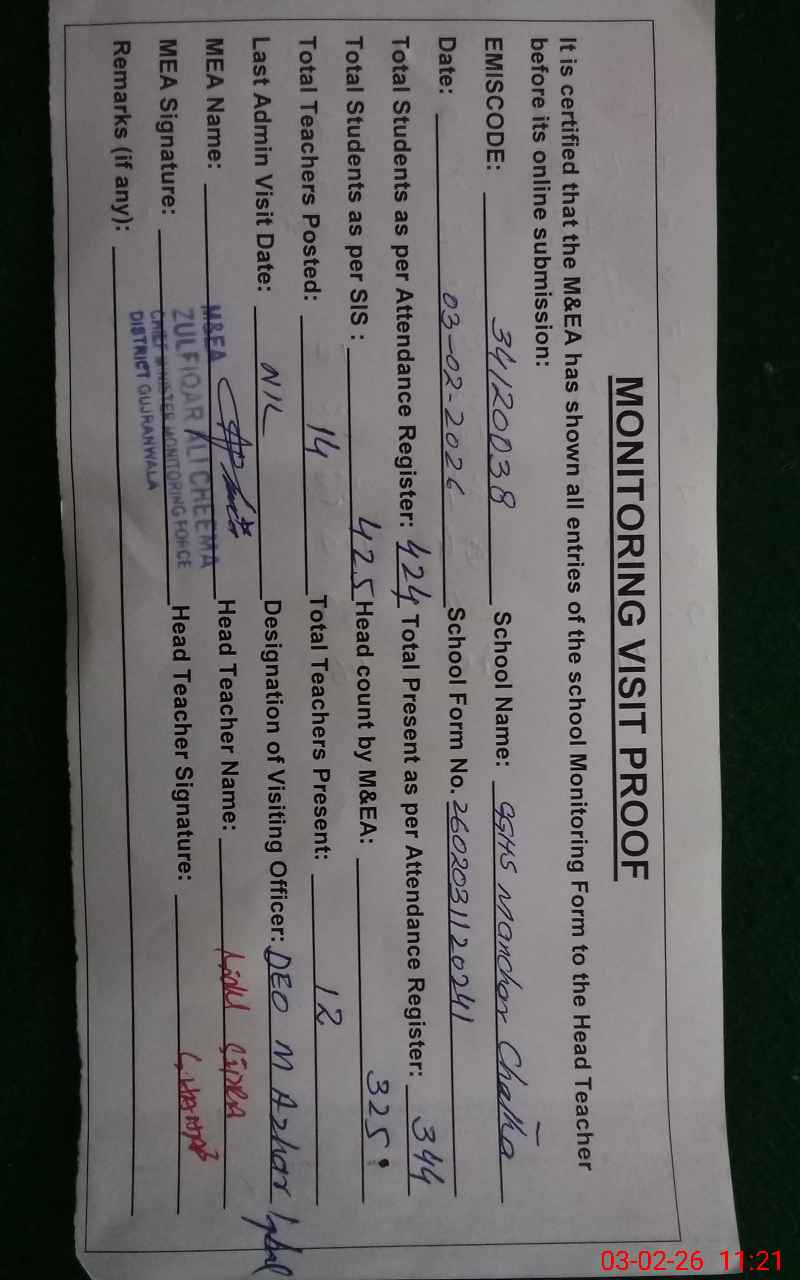 MONITORING VISIT PROOF
It is certified that the M&EA has shown all entries of the school Monitoring Form to the Head Teacher
before its online submission:
EMISCODE: 34120038 School Name: GGHS Manchar Chatha
Date: 03-02-2026 School Form No. 2602031120241
Total Students as per Attendance Register: 424 Total Present as per Attendance Register: 344
Total Students as per SIS : 425 Head count by M&EA: 325
Total Teachers Posted: 14 Total Teachers Present: 12
Last Admin Visit Date: NIL Designation of Visiting Officer: DEO M Azhar Iqbal
MEA Name: Head Teacher Name:
MEA Signature: Head Teacher Signature:
Remarks (if any):
M&EA
ZULFIQAR ALI CHEEMA
CHIEF MINISTER MONITORING FORCE
DISTRICT GUJRANWALA
03-02-26 11:21